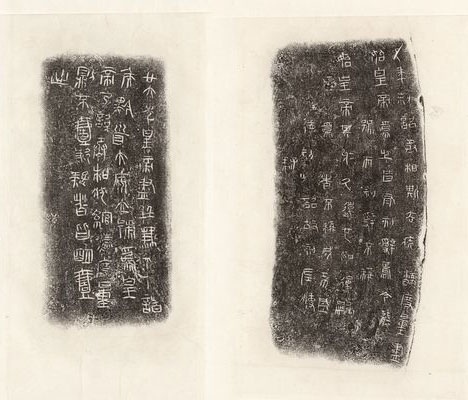 元年制詔丞相斯去疾灋度量盡
始皇帝爲之皆有刻辭焉今襲
號而刻辭不稱
始皇帝其於久遠也如後嗣
爲之者不稱成功盛
德刻此詔故刻左使毋
疑
廿六年皇帝盡并兼天下諸
侯黔首大安立號爲皇
帝乃詔丞相狀綰灋度量
則不壹歉疑者皆明壹
之